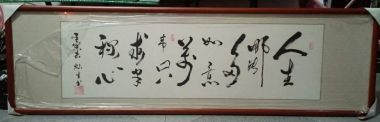 人生
哪能
多
如意
萬
事只
求半
稱心